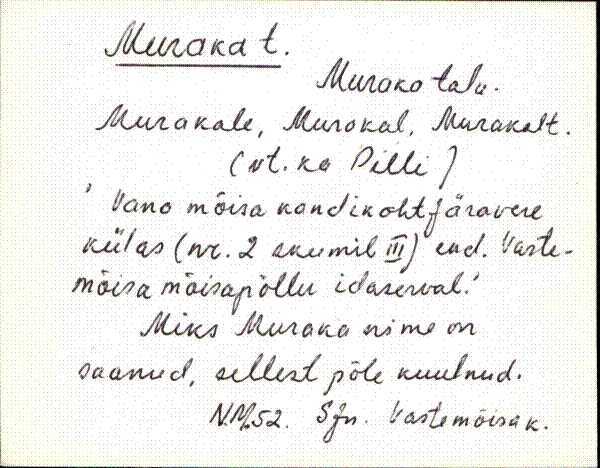 Muraka t.
Muraka talu.
Murakale, Murakal, Murakalt.
(vt. ka Pilli)
' Vana mõisa kandikoht Järavere
külas (nr. 2 skeemil III) end. Vaste-
mõisa mõisapõllu idaserval.'
Miks Muraka nime on
saanud, sellest põle kuulnud.
N.M.52. SJn. Vastemõisa k.